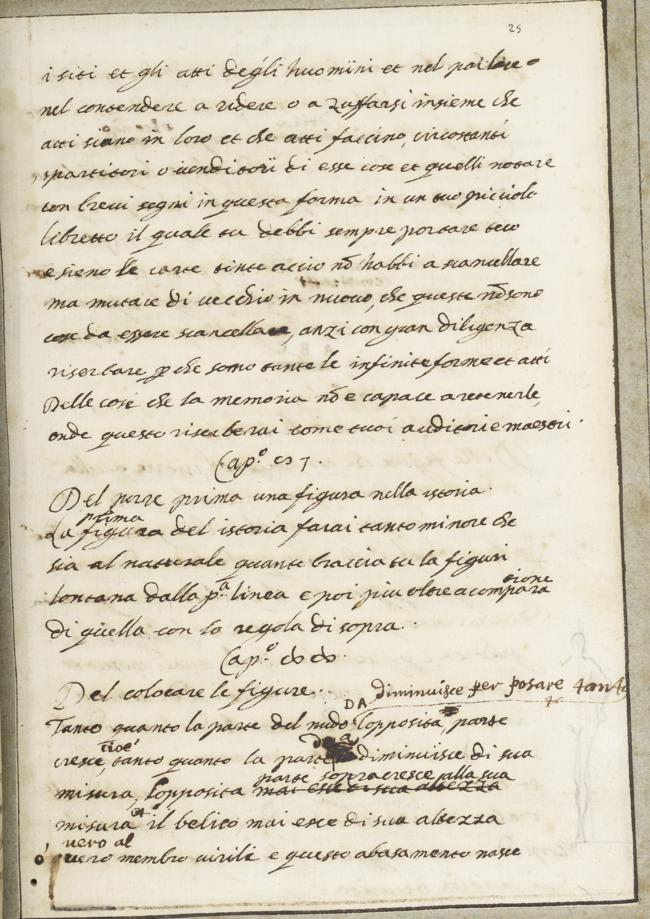 25
i siti et gli atti degli huomini et nel parlare o
nel contendere a ridere o a zuffarsi insieme che
atti siano in loro et che atti faccino, circostanti
spartitori o venditori di esse cose et quelli notare
con brevi segni in questa forma in un tuo picciolo
libretto il quale tu debbi sempre portare teco
e sieno le carte tinte accio nō habbi a scancellare
ma mutare di vecchio in nuovo, che queste nō sono
cose da essere scancellate, anzi con gran diligenza
riserbare p che sono tante le infinite forme et atti
Delle cose che la memoria nō e capace a retenerle,
onde questo riserberai come tuoi auditori e maestri.
Cap.º 67.
Del porre prima una figura nella istoria.
La prima figura del istoria farai tanto minore che
sia al naturale quante braccia tu la figuri
lontana dalla p.ª linea e poi piu oltre a comparatione
di quella con la regola di sopra.
Cap.º 68.
Del colocare le figure.
DA diminuisce per posare
Tanto quanto la parte del nudo l'opposita parte
cresce, cioè tanto quanto la parte diminuisce di sua
misura, l'opposita parte sopracresce alla sua
mai esse di sua altezza
misura et il belico mai esce di sua altezza
vero al
vero membro virile e questo abasamento nasce